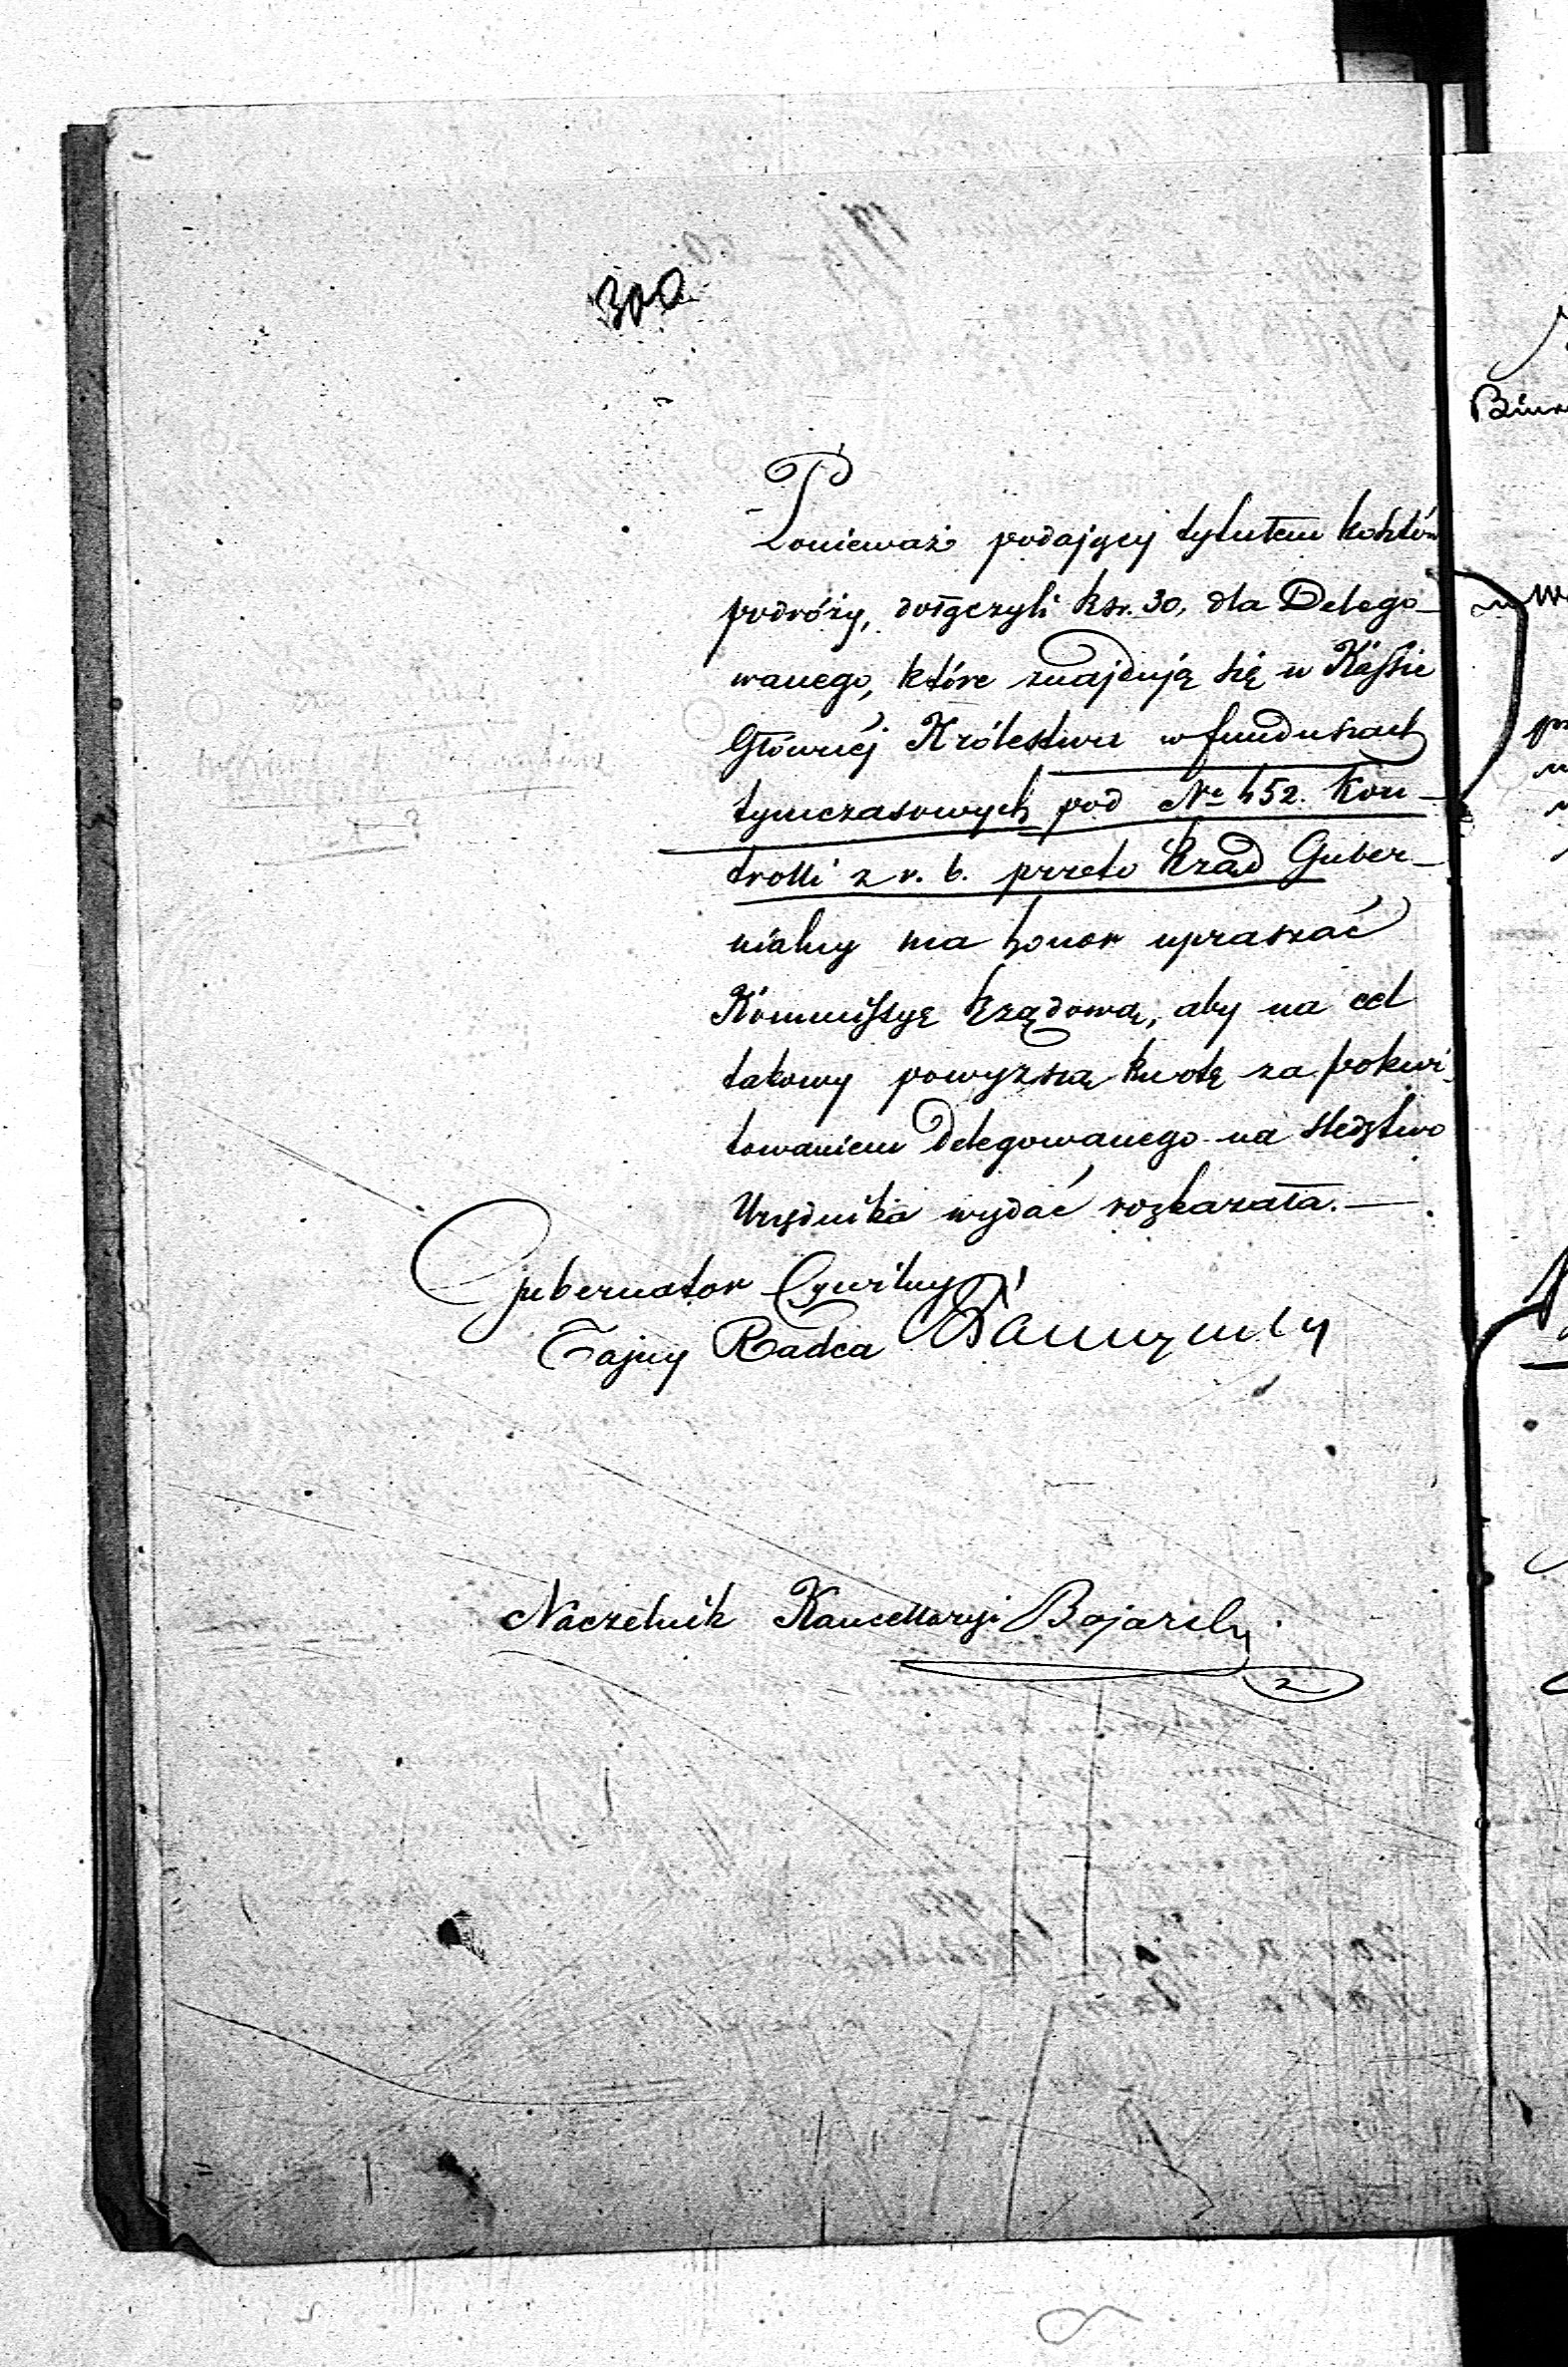 300
Ponieważ podający tytułem kosztów
podróży, dołączyli Rsr. 30, dla Delego-
wanego, które znajdują się w Kassie
Głównéj Królestwa w funduszach
tymczasowych pod № 452. Kon-
trolli z r. b. przeto Rząd Guber-
nialny ma honor upraszać
Kommissyę Rządową, aby na cel
takowy powyższą kwotę za pokwi-
towaniem Delegowanego na śledztwo
Urzędnika wydać rozkazała.—
Gubernator Cywilny
Tajny Radca
Naczelnik Kancellaryi Bojarsky